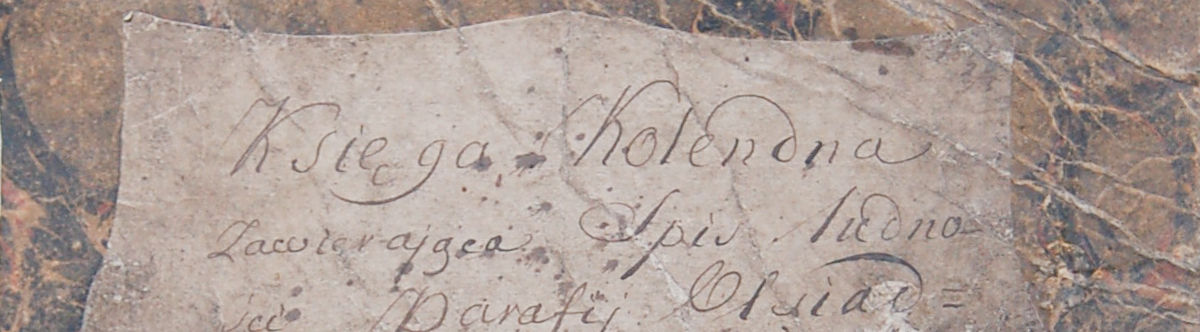 Księga Kolendna
Zawierająca Spis ludno-
ści Parafij Olsiad=